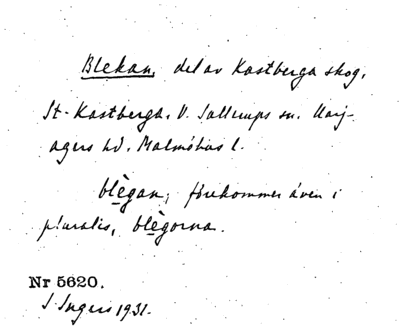 Blekan, del av Kastberga skog,
St. Kastberga. V. Sallerups sn. Harj-
agers hd. Malmöhus l.
blègan, förekommer även i
pluralis, blègorna.
Nr 5620.
I. Ingers 1931.